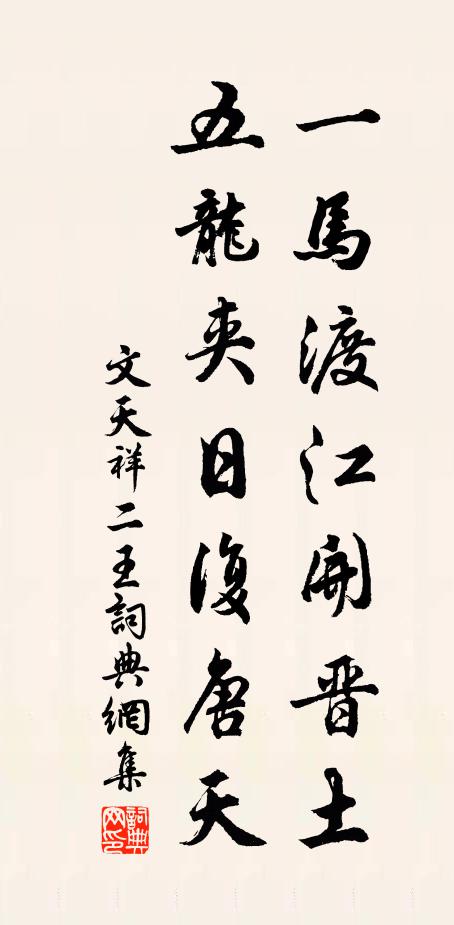 一馬渡江開晋土
五龍夾日復唐天
文天祥二王詞典網集
詞典
网印